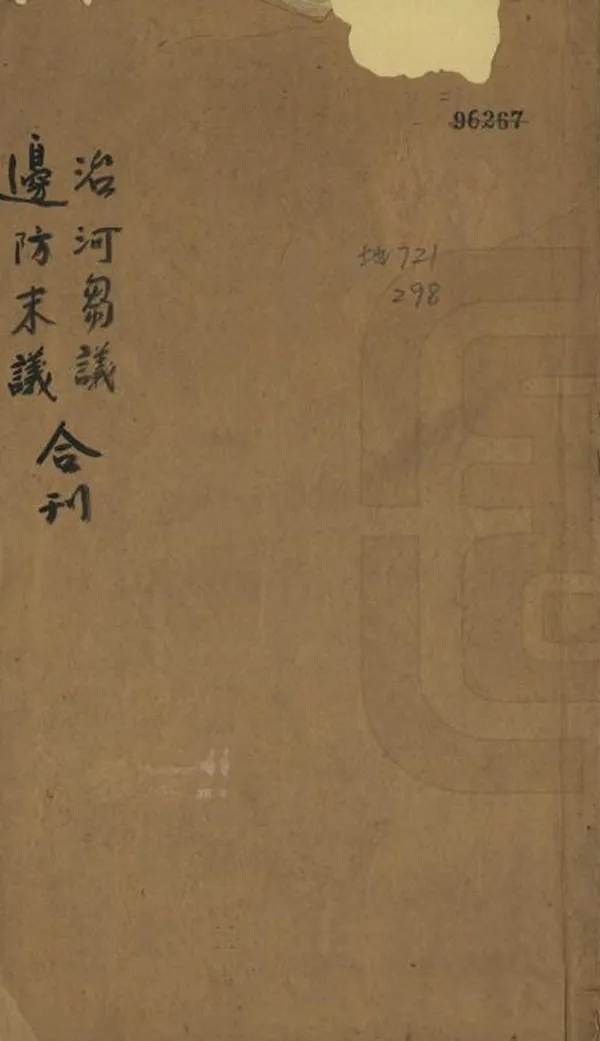 96267
地721
298
治河芻議
邊防末議
合刊